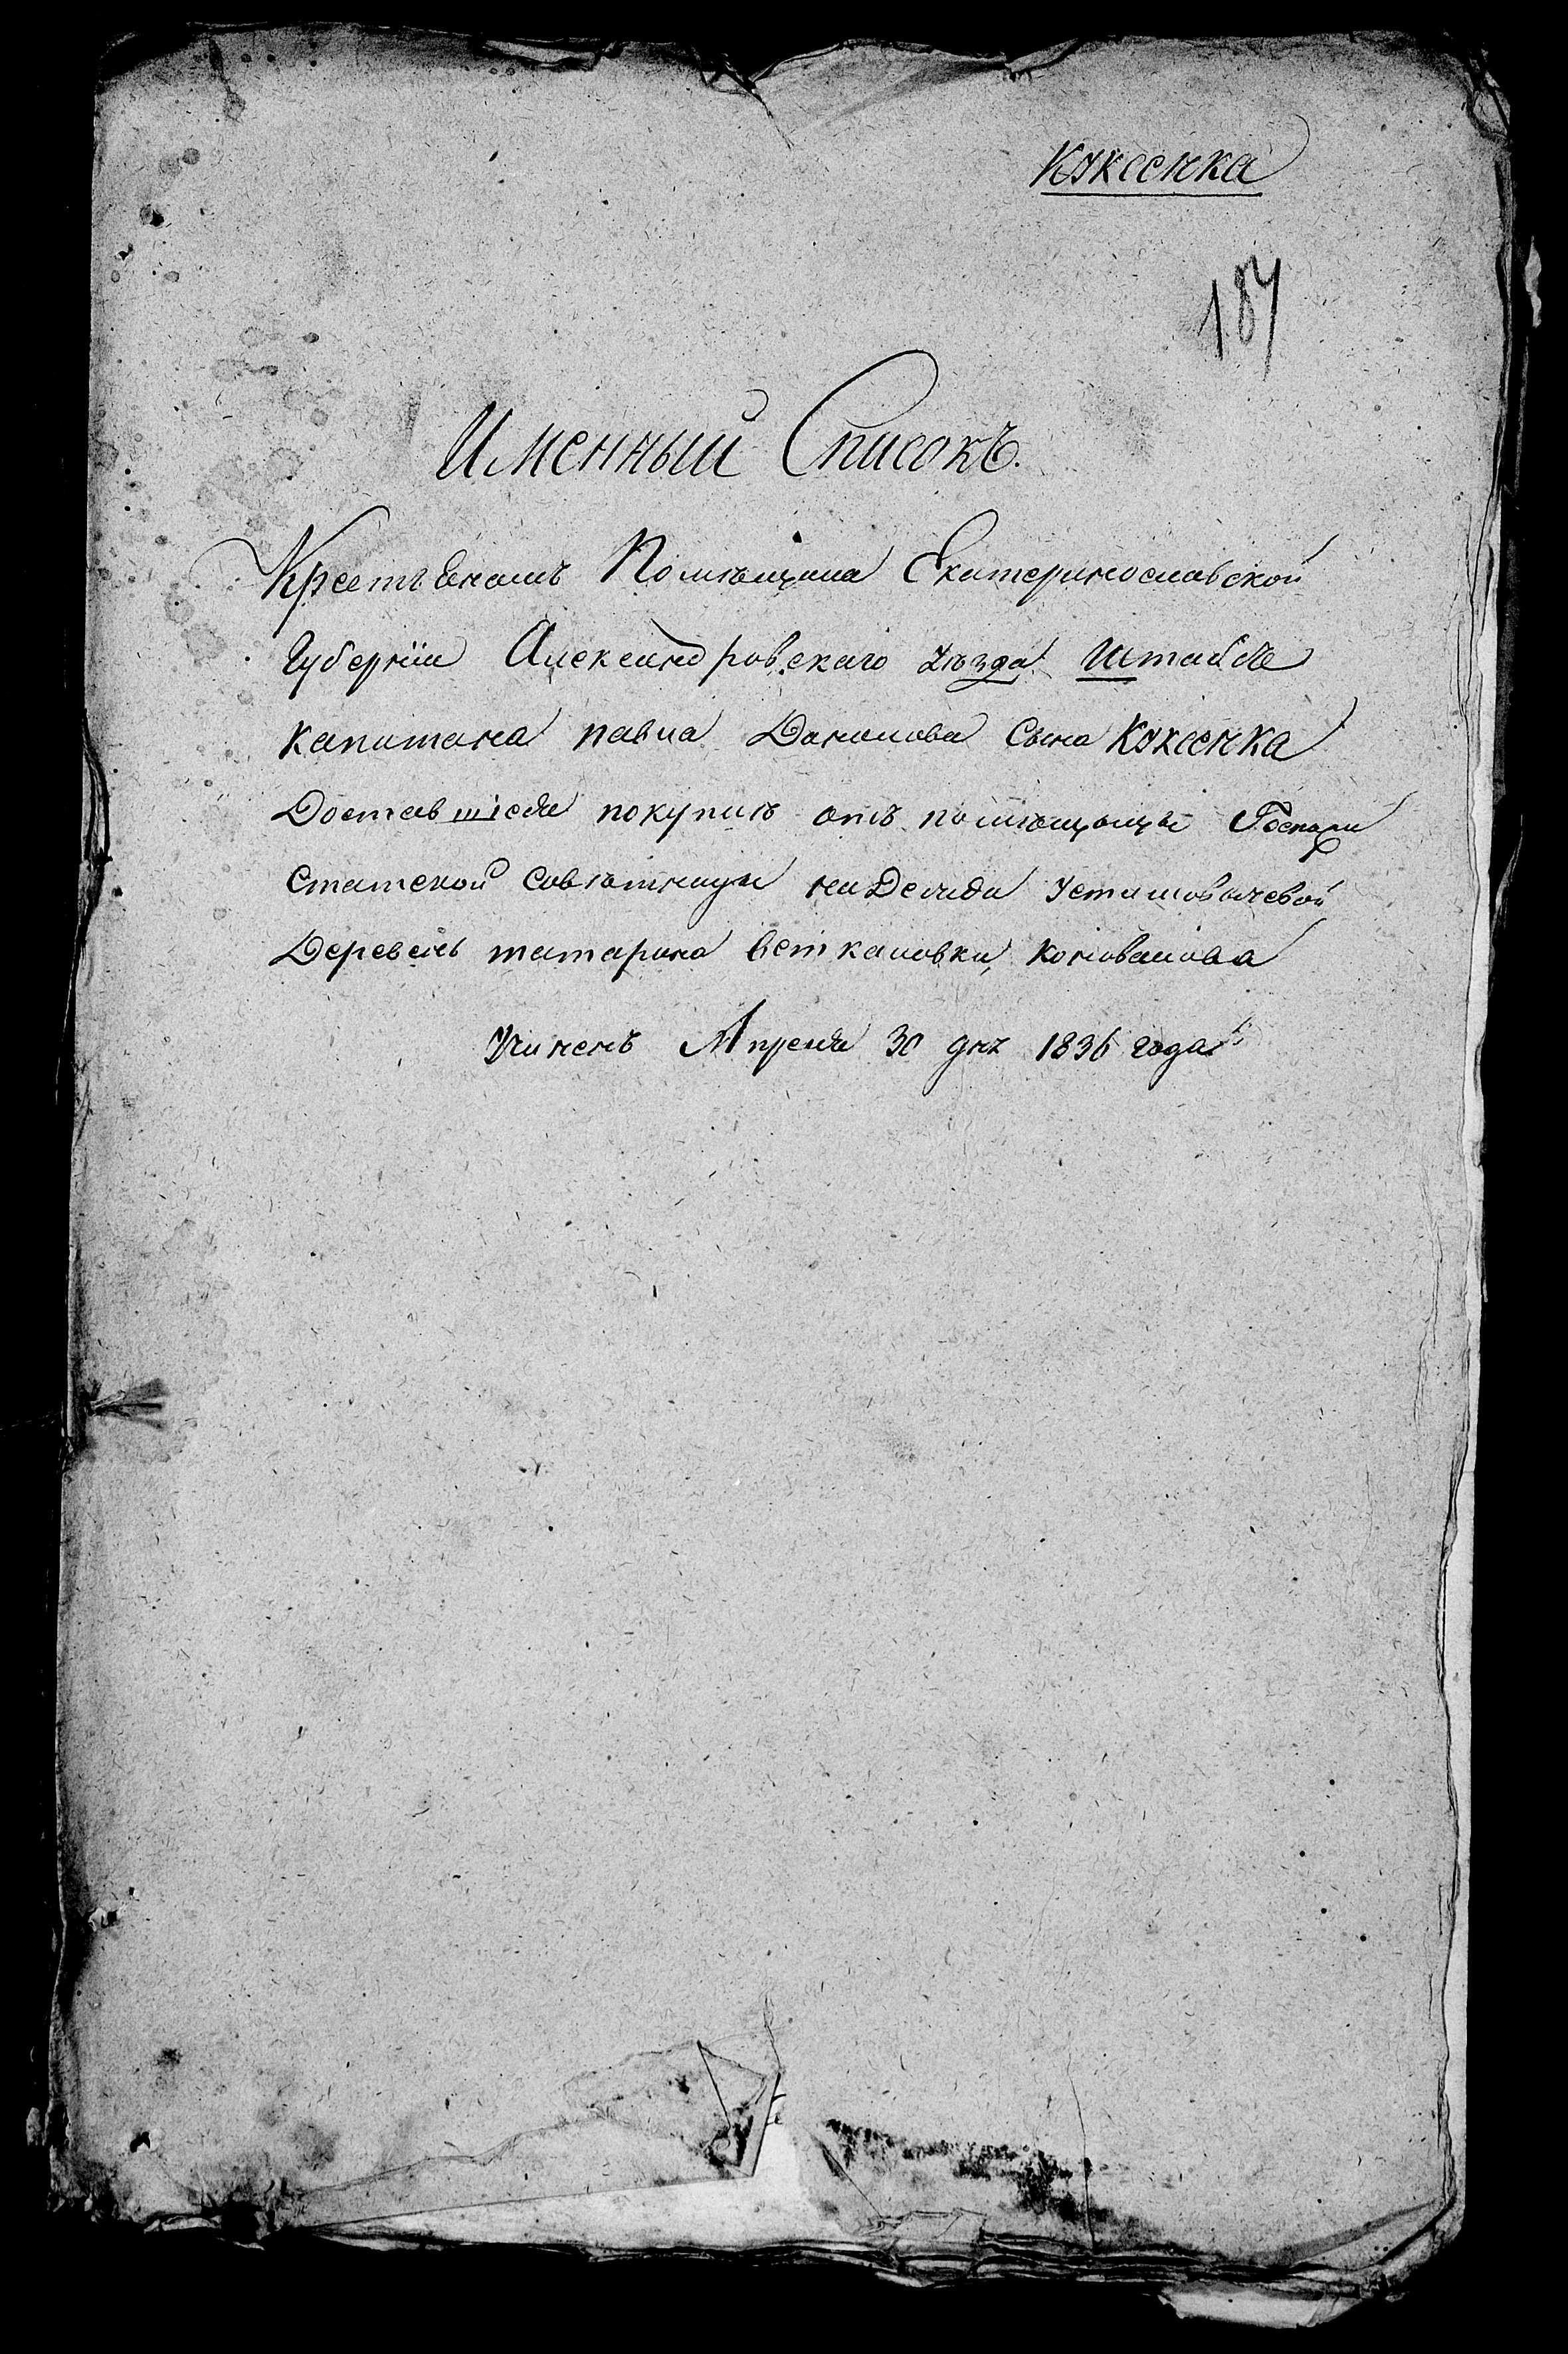 Кꙋксенка
187
Именный Списокъ.
Крестьѣнамъ Помѣщика Екатеринославской
Губерніи Александровскаго Уѣзда Штабсъ
капитана павла Данилова Сына Кꙋксенка
Доставшіеся покупкѣ отъ помѣщицы
Статской совѣтницы
Деревень татарина веткаловки, коновалова
Учиненъ Апреля 30 дня 1836 года